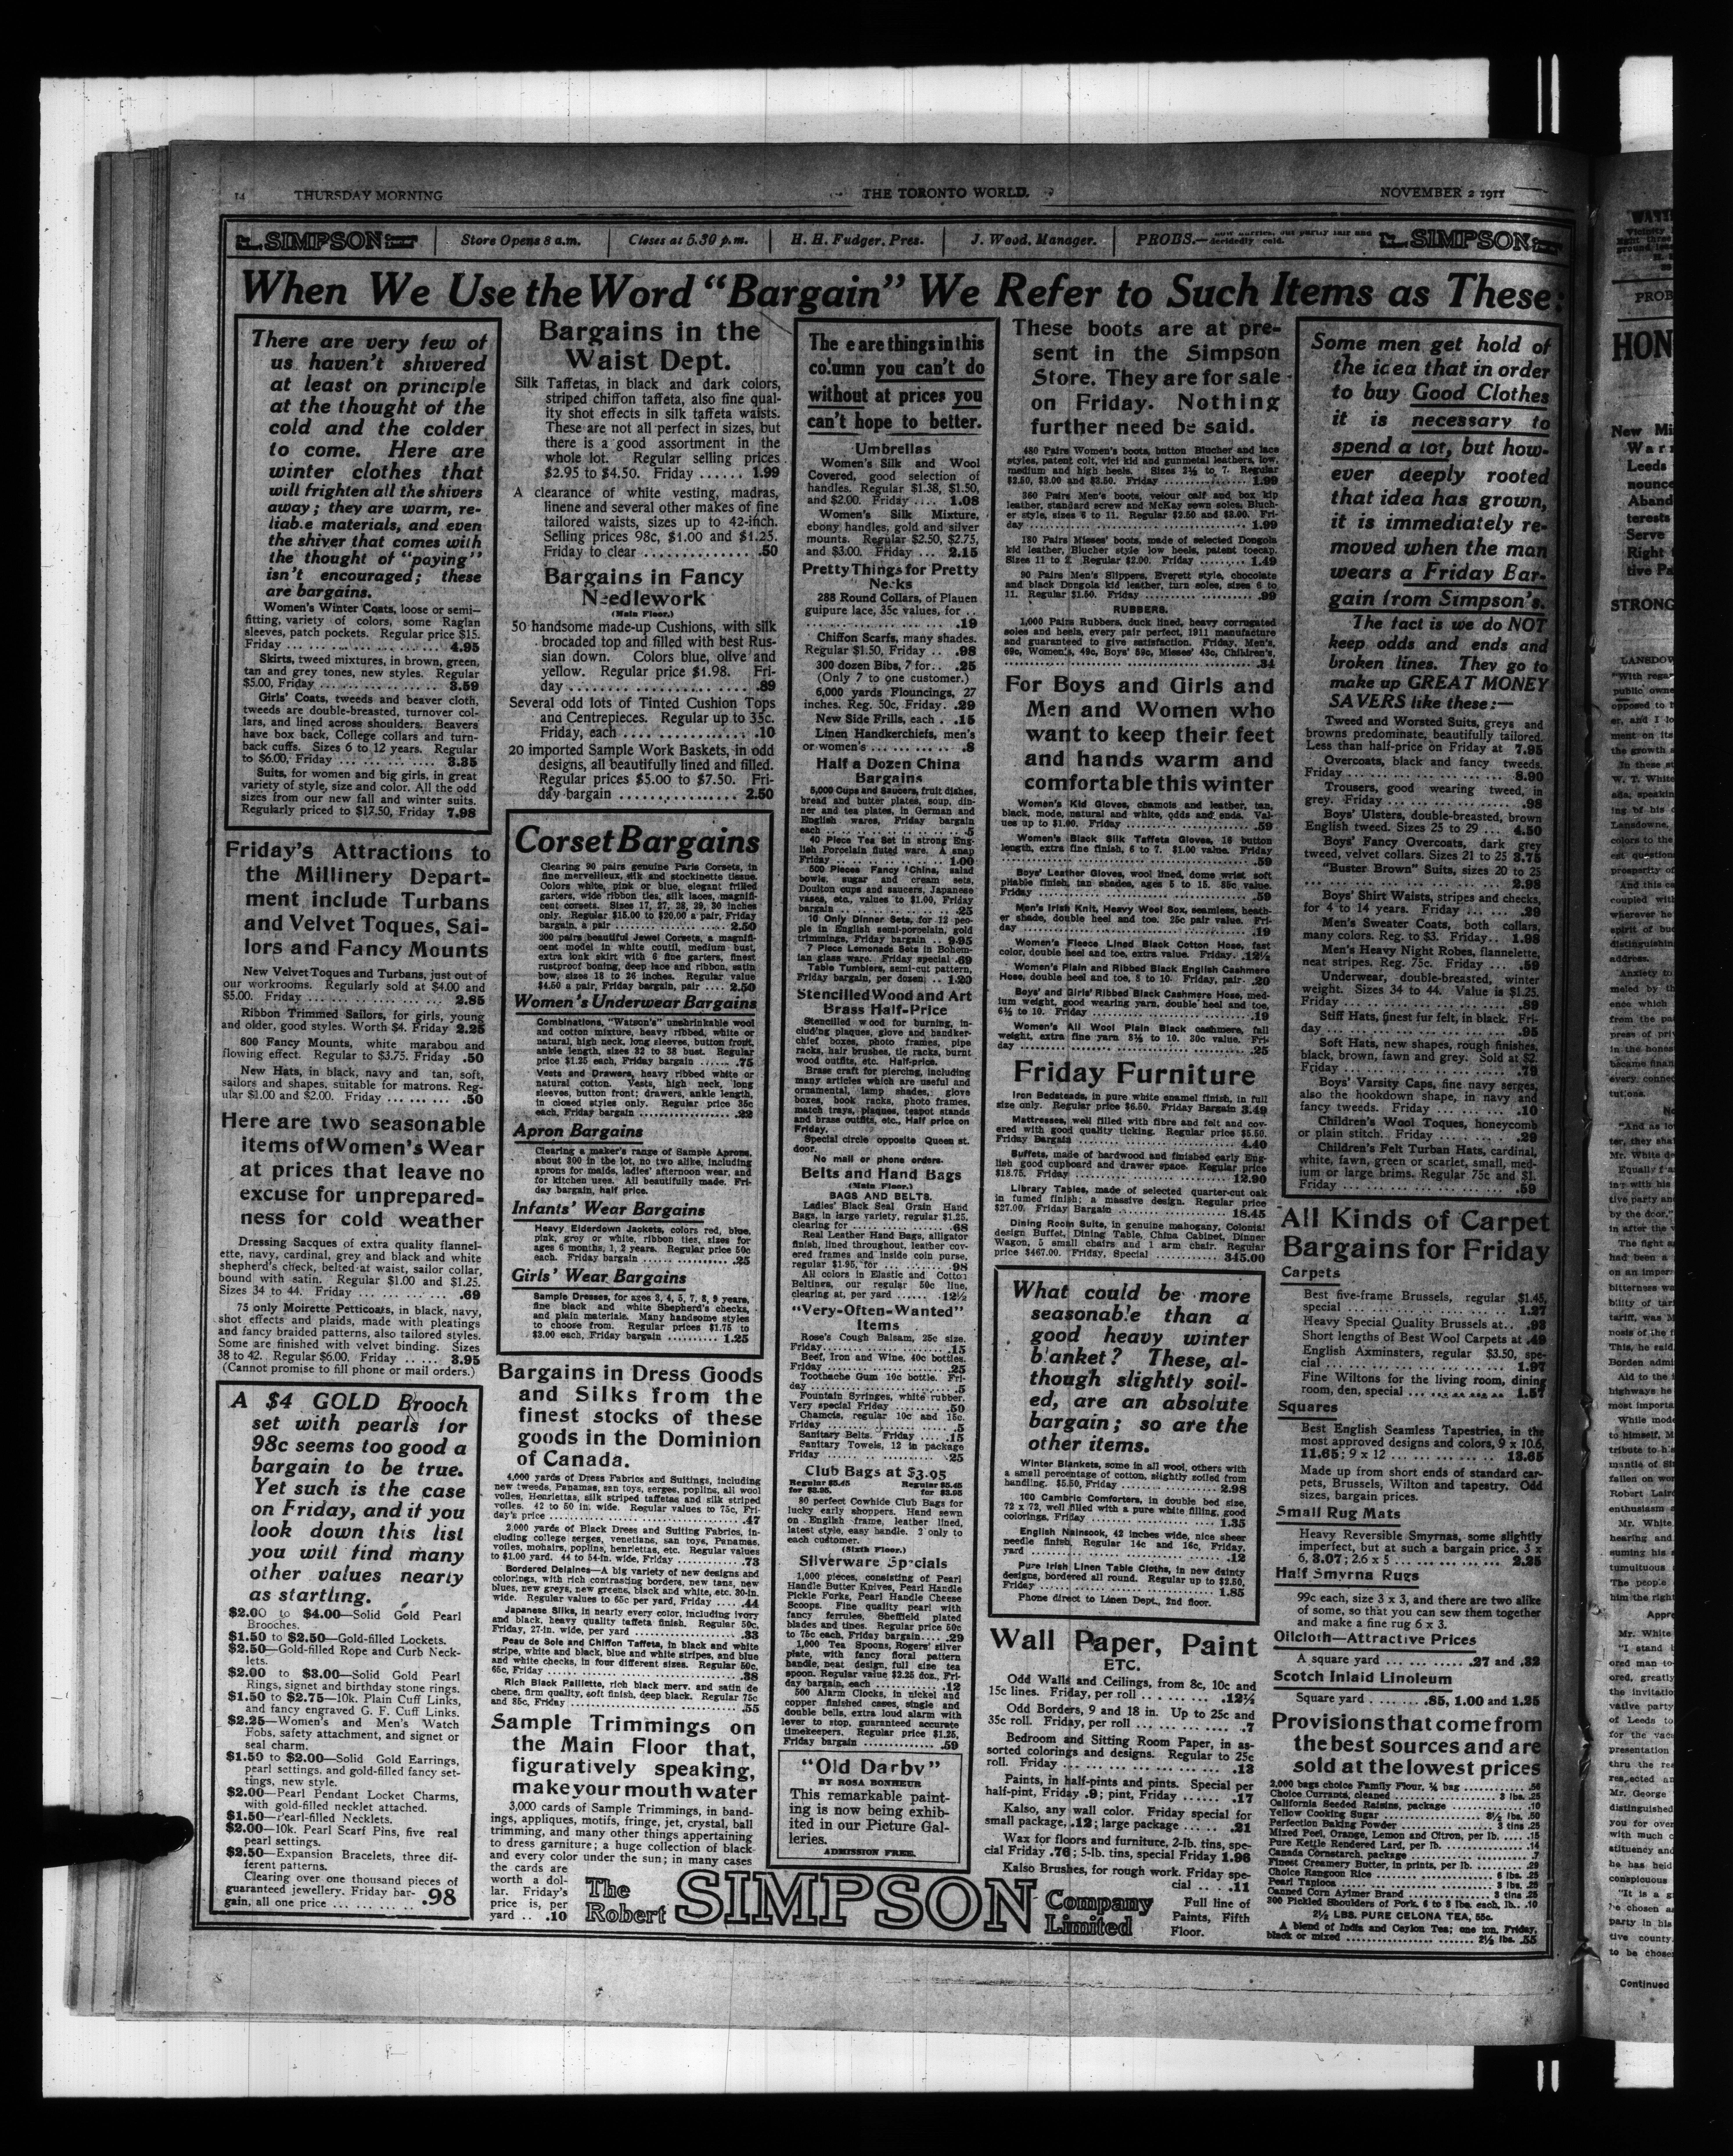 14 THURSDAY MORNING THE TORONTO WORLD. NOVEMBER 2 1911
SIMPSON Store Opens 8 a.m. Closes at 5.30 p.m. H. H. Fudger, Pres. J. Wood, Manager. PROBS.— decidedly cold. SIMPSON
When We Use the Word "Bargain" We Refer to Such Items as These:
There are very few of
us haven't shivered
at least on principle
at the thought of the
cold and the colder
to come. Here are
winter clothes that
will frighten all the shivers
away; they are warm, re-
liable materials, and even
the shiver that comes with
the thought of "paying"
isn't encouraged; these
are bargains.
Women's Winter Coats, loose or semi-
fitting, variety of colors, some Raglan
sleeves, patch pockets. Regular price $15.
Friday ... 4.95
Skirts, tweed mixtures, in brown, green,
tan and grey tones, new styles. Regular
$5.00, Friday ... 3.59
Girls' Coats, tweeds and beaver cloth,
tweeds are double-breasted, turnover col-
lars, and lined across shoulders. Beavers
have box back, College collars and turn-
back cuffs. Sizes 6 to 12 years. Regular
to $6.00, Friday ... 3.35
Suits, for women and big girls, in great
variety of style, size and color. All the odd
sizes from our new fall and winter suits.
Regularly priced to $17.50, Friday 7.98
Friday's Attractions to
the Millinery Depart-
ment include Turbans
and Velvet Toques, Sai-
lors and Fancy Mounts
New Velvet Toques and Turbans, just out of
our workrooms. Regularly sold at $4.00 and
$5.00. Friday ... 2.85
Ribbon Trimmed Sailors, for girls, young
and older, good styles. Worth $4. Friday 2.25
800 Fancy Mounts, white marabou and
flowing effect. Regular to $3.75. Friday .50
New Hats, in black, navy and tan, soft,
sailors and shapes, suitable for matrons. Reg-
ular $1.00 and $2.00. Friday ... .50
Here are two seasonable
items of Women's Wear
at prices that leave no
excuse for unprepared-
ness for cold weather
Dressing Sacques of extra quality flannel-
ette, navy, cardinal, grey and black and white
shepherd's check, belted at waist, sailor collar,
bound with satin. Regular $1.00 and $1.25.
Sizes 34 to 44. Friday ... .69
75 only Moirette Petticoats, in black, navy,
shot effects and plaids, made with pleatings
and fancy braided patterns, also tailored styles.
Some are finished with velvet binding. Sizes
38 to 42. Regular $6.00. Friday ... 3.95
(Cannot promise to fill phone or mail orders.)
A $4 GOLD Brooch
set with pearls for
98c seems too good a
bargain to be true.
Yet such is the case
on Friday, and if you
look down this list
you will find many
other values nearly
as startling.
$2.00 to $4.00—Solid Gold Pearl
Brooches.
$1.50 to $2.50—Gold-filled Lockets.
$2.50—Gold-filled Rope and Curb Neck-
lets.
$2.00 to $3.00—Solid Gold Pearl
Rings, signet and birthday stone rings.
$1.50 to $2.75—10k. Plain Cuff Links,
and fancy engraved G. F. Cuff Links.
$2.25—Women's and Men's Watch
Fobs, safety attachment, and signet or
seal charm.
$1.50 to $2.00—Solid Gold Earrings,
pearl settings, and gold-filled fancy set-
tings, new style.
$2.00—Pearl Pendant Locket Charms,
with gold-filled necklet attached.
$1.50—Pearl-filled Necklets.
$2.00—10k. Pearl Scarf Pins, five real
pearl settings.
$2.50—Expansion Bracelets, three dif-
ferent patterns.
Clearing over one thousand pieces of
guaranteed jewellery. Friday bar-
gain, all one price ... .98
Bargains in the
Waist Dept.
Silk Taffetas, in black and dark colors,
striped chiffon taffeta, also fine qual-
ity shot effects in silk taffeta waists.
These are not all perfect in sizes, but
there is a good assortment in the
whole lot. Regular selling prices
$2.95 to $4.50. Friday ... 1.99
A clearance of white vesting, madras,
linene and several other makes of fine
tailored waists, sizes up to 42-inch.
Selling prices 98c, $1.00 and $1.25.
Friday to clear ... .50
Bargains in Fancy
Needlework
(Main Floor.)
50 handsome made-up Cushions, with silk
brocaded top and filled with best Rus-
sian down. Colors blue, olive and
yellow. Regular price $1.98. Fri-
day ... .89
Several odd lots of Tinted Cushion Tops
and Centrepieces. Regular up to 35c.
Friday, each ... .10
20 imported Sample Work Baskets, in odd
designs, all beautifully lined and filled.
Regular prices $5.00 to $7.50. Fri-
day bargain ... 2.50
Corset Bargains
Clearing 90 pairs genuine Paris Corsets, in
fine merveilleux, silk and stockinette tissue.
Colors white, pink or blue, elegant frilled
garters, wide ribbon ties, silk laces, magnifi-
cent corsets. Sizes 17, 27, 28, 29, 30 inches
only. Regular $15.00 to $20.00 a pair, Friday
bargain, a pair ... 2.50
200 pairs beautiful Jewel Corsets, a magnifi-
cent model in white coutil, medium bust,
extra long skirt with 6 fine garters, finest
rustproof boning, deep lace and ribbon, satin
bow, sizes 18 to 26 inches. Regular value
$4.50 a pair, Friday bargain, pair ... 2.50
Women's Underwear Bargains
Combinations, "Watson's" unshrinkable wool
and cotton mixture, heavy ribbed, white or
natural, high neck, long sleeves, button front,
ankle length, sizes 32 to 38 bust. Regular
price $1.25 each, Friday bargain ... .75
Vests and Drawers, heavy ribbed white or
natural cotton. Vests, high neck, long
sleeves, button front; drawers, ankle length,
in closed styles only. Regular price 35c
each, Friday bargain ... .22
Apron Bargains
Clearing a maker's range of Sample Aprons,
about 300 in the lot, no two alike, including
aprons for maids, ladies' afternoon wear, and
for kitchen uses. All beautifully made. Fri-
day bargain, half price.
Infants' Wear Bargains
Heavy Eiderdown Jackets, colors red, blue,
pink, grey or white, ribbon ties, sizes for
ages 6 months, 1, 2 years. Regular price 50c
each. Friday bargain ... .25
Girls' Wear Bargains
Sample Dresses, for ages 3, 4, 5, 7, 8, 9 years,
fine black and white Shepherd's checks,
and plain materials. Many handsome styles
to choose from. Regular prices $1.75 to
$3.00 each, Friday bargain ... 1.25
Bargains in Dress Goods
and Silks from the
finest stocks of these
goods in the Dominion
of Canada.
4,000 yards of Dress Fabrics and Suitings, including
new tweeds, Panamas, san toys, serges, poplins, all wool
voiles, Henriettas, silk striped taffetas and silk striped
voiles. 42 to 50 in. wide. Regular values to 75c, Fri-
day's price ... .47
2,000 yards of Black Dress and Suiting Fabrics, in-
cluding college serges, venetians, san toys, Panamas,
voiles, mohairs, poplins, henriettas, etc. Regular values
to $1.00 yard. 44 to 54-in. wide, Friday ... .73
Bordered Delaines—A big variety of new designs and
colorings, with rich contrasting borders, new tans, new
blues, new greys, new greens, black and white, etc. 30-in.
wide. Regular values to 65c per yard, Friday ... .44
Japanese Silks, in nearly every color, including ivory
and black, heavy quality taffeta finish. Regular 50c,
Friday, 27-in. wide, per yard ... .33
Peau de Soie and Chiffon Taffeta, in black and white
stripe, white and black, blue and white stripes, and blue
and white checks, in four different sizes. Regular 50c,
65c, Friday ... .38
Rich Black Paillette, rich black merv. and satin de
chene, firm quality, soft finish, deep black. Regular 75c
and 85c, Friday ... .55
Sample Trimmings on
the Main Floor that,
figuratively speaking,
make your mouth water
3,000 cards of Sample Trimmings, in band-
ings, appliques, motifs, fringe, jet, crystal, ball
trimming, and many other things appertaining
to dress garniture; a huge collection of black
and every color under the sun; in many cases
the cards are
worth a dol-
lar. Friday's
price is, per
yard .. .10
The e are things in this
column you can't do
without at prices you
can't hope to better.
Umbrellas
Women's Silk and Wool
Covered, good selection of
handles. Regular $1.38, $1.50,
and $2.00. Friday ... 1.08
Women's Silk Mixture,
ebony handles, gold and silver
mounts. Regular $2.50, $2.75,
and $3.00. Friday ... 2.15
Pretty Things for Pretty
Necks
288 Round Collars, of Plauen
guipure lace, 35c values, for ..
... .19
Chiffon Scarfs, many shades.
Regular $1.50, Friday .. .98
300 dozen Bibs, 7 for.. .25
(Only 7 to one customer.)
6,000 yards Flouncings, 27
inches. Reg. 50c, Friday. .29
New Side Frills, each . .15
Linen Handkerchiefs, men's
or women's ... .8
Half a Dozen China
Bargains
5,000 Cups and Saucers, fruit dishes,
bread and butter plates, soup, din-
ner and tea plates, in German and
English wares, Friday bargain
each ... .5
40 Piece Tea Set in strong Eng-
lish Porcelain fluted ware. A snap
Friday ... 1.00
500 Pieces Fancy China, salad
bowls, sugar and cream sets,
Doulton cups and saucers, Japanese
vases, etc., values to $1.00, Friday
bargain ... .25
10 Only Dinner Sets, for 12 peo-
ple in English semi-porcelain, gold
trimmings, Friday bargain .. 9.95
7 Piece Lemonade Sets in Bohem-
ian glass ware. Friday special .69
Table Tumblers, semi-cut pattern,
Friday bargain, per dozen .. 1.20
Stencilled Wood and Art
Brass Half-Price
Stencilled wood for burning, in-
cluding plaques, glove and handker-
chief boxes, photo frames, pipe
racks, hair brushes, tie racks, burnt
wood outfits, etc. Half-price.
Brass craft for piercing, including
many articles which are useful and
ornamental, lamp shades, glove
boxes, book racks, photo frames,
match trays, plaques, teapot stands
and brass outfits, etc., Half price on
Friday.
Special circle opposite Queen st.
door.
No mail or phone orders.
Belts and Hand Bags
(Main Floor.)
BAGS AND BELTS.
Ladies' Black Seal Grain Hand
Bags, in large variety, regular $1.25,
clearing for ... .68
Real Leather Hand Bags, alligator
finish, lined throughout, leather cov-
ered frames and inside coin purse,
regular $1.95, for ... .98
All colors in Elastic and Cotton
Beltings, our regular 50c line,
clearing at, per yard ... .12½
"Very-Often-Wanted"
Items
Rose's Cough Balsam, 25c size.
Friday ... .15
Beef, Iron and Wine, 40c bottles.
Friday ... .25
Toothache Gum 10c bottle. Fri-
day ... .5
Fountain Syringes, white rubber.
Very special Friday ... .50
Chamois, regular 10c and 15c.
Friday ... .5
Sanitary Belts. Friday ... .15
Sanitary Towels, 12 in package
Friday ... .25
Club Bags at $3.95
Regular $5.45 Regular $5.45
for $3.95. for $3.95
80 perfect Cowhide Club Bags for
lucky early shoppers. Hand sewn
on English frame, leather lined,
latest style, easy handle. 2 only to
each customer.
(Sixth Floor.)
Silverware Specials
1,000 pieces, consisting of Pearl
Handle Butter Knives, Pearl Handle
Pickle Forks, Pearl Handle Cheese
Scoops. Fine quality pearl with
fancy ferrules, Sheffield plated
blades and tines. Regular price 50c
to 75c each, Friday bargain.... .29
1,000 Tea Spoons, Rogers' silver
plate, with fancy floral pattern
handle, neat design, full size tea
spoon. Regular value $2.25 doz., Fri-
day bargain, each ... .12
500 Alarm Clocks, in nickel and
copper finished cases, single and
double bells, extra loud alarm with
lever to stop, guaranteed accurate
timekeepers. Regular price $1.25,
Friday bargain ... .59
"Old Darby"
BY ROSA BONHEUR
This remarkable paint-
ing is now being exhib-
ited in our Picture Gal-
leries.
ADMISSION FREE.
These boots are at pre-
sent in the Simpson
Store. They are for sale
on Friday. Nothing
further need be said.
480 Pairs Women's boots, button Blucher and lace
styles, patent colt, vici kid and gunmetal leathers, low,
medium and high heels. Sizes 2½ to 7. Regular
$2.50, $3.00 and $3.50. Friday ... 1.99
360 Pairs Men's boots, velour calf and box kip
leather, standard screw and McKay sewn soles, Bluch-
er style, sizes 6 to 11. Regular $2.50 and $3.00. Fri-
day ... 1.99
180 Pairs Misses' boots, made of selected Dongola
kid leather, Blucher style low heels, patent toecap.
Sizes 11 to 2. Regular $2.00. Friday ... 1.49
90 Pairs Men's Slippers, Everett style, chocolate
and black Dongola kid leather, turn soles, sizes 6 to
11. Regular $1.50. Friday ... .99
RUBBERS.
1,000 Pairs Rubbers, duck lined, heavy corrugated
soles and heels, every pair perfect, 1911 manufacture
and guaranteed to give satisfaction. Friday, Men's,
69c, Women's, 49c, Boys' 59c, Misses' 43c, Children's,
... .34
For Boys and Girls and
Men and Women who
want to keep their feet
and hands warm and
comfortable this winter
Women's Kid Gloves, chamois and leather, tan,
black, mode, natural and white, odds and ends. Val-
ues up to $1.00. Friday ... .59
Women's Black Silk Taffeta Gloves, 16 button
length, extra fine finish, 6 to 7. $1.00 value. Friday
... .59
Boys' Leather Gloves, wool lined, dome wrist soft
pliable finish, tan shades, ages 5 to 15. 85c value.
Friday ... .59
Men's Irish Knit, Heavy Wool Sox, seamless, heath-
er shade, double heel and toe. 25c pair value. Fri-
day ... .19
Women's Fleece Lined Black Cotton Hose, fast
color, double heel and toe, extra value. Friday. .12½
Women's Plain and Ribbed Black English Cashmere
Hose, double heel and toe, 8 to 10. Friday, pair. .20
Boys' and Girls' Ribbed Black Cashmere Hose, med-
ium weight, good wearing yarn, double heel and toe,
6½ to 10. Friday ... .19
Women's All Wool Plain Black cashmere, fall
weight, extra fine yarn 8½ to 10. 30c value. Fri-
day ... .25
Friday Furniture
Iron Bedsteads, in pure white enamel finish, in full
size only. Regular price $6.50. Friday Bargain 3.49
Mattresses, well filled with fibre and felt and cov-
ered with good quality ticking. Regular price $5.50.
Friday Bargain ... 4.40
Buffets, made of hardwood and finished early Eng-
lish good cupboard and drawer space. Regular price
$18.75, Friday ... 12.90
Library Tables, made of selected quarter-cut oak
in fumed finish; a massive design. Regular price
$27.00. Friday Bargain ... 18.45
Dining Room Suite, in genuine mahogany, Colonial
design Buffet, Dining Table, China Cabinet, Dinner
Wagon, 5 small chairs and 1 arm chair. Regular
price $467.00. Friday, Special ... 345.00
What could be more
seasonable than a
good heavy winter
blanket? These, al-
though slightly soil-
ed, are an absolute
bargain; so are the
other items.
Winter Blankets, some in all wool, others with
a small percentage of cotton, slightly soiled from
handling. $5.50, Friday ... 2.98
100 Cambric Comforters, in double bed size,
72 x 72, well filled with a pure white filling, good
colorings, Friday ... 1.35
English Nainsook, 42 inches wide, nice sheer
needle finish, Regular 14c and 16c, Friday,
yard ... .12
Pure Irish Linen Table Cloths, in new dainty
designs, bordered all round. Regular up to $2.50,
Friday ... 1.85
Phone direct to Linen Dept., 2nd floor.
Wall Paper, Paint
ETC.
Odd Walls and Ceilings, from 8c, 10c and
15c lines. Friday, per roll ... .12½
Odd Borders, 9 and 18 in. Up to 25c and
35c roll. Friday, per roll ... .7
Bedroom and Sitting Room Paper, in as-
sorted colorings and designs. Regular to 25c
roll. Friday ... .13
Paints, in half-pints and pints. Special per
half-pint, Friday .9; pint, Friday ... .17
Kalso, any wall color. Friday special for
small package, .12; large package ... .21
Wax for floors and furniture, 2-lb. tins, spe-
cial Friday .76; 5-lb. tins, special Friday 1.96
Kalso Brushes, for rough work. Friday spe-
cial ... .11
Full line of
Paints, Fifth
Floor.
Some men get hold of
the idea that in order
to buy Good Clothes
it is necessary to
spend a lot, but how-
ever deeply rooted
that idea has grown,
it is immediately re-
moved when the man
wears a Friday Bar-
gain from Simpson's.
The fact is we do NOT
keep odds and ends and
broken lines. They go to
make up GREAT MONEY
SAVERS like these:—
Tweed and Worsted Suits, greys and
browns predominate, beautifully tailored.
Less than half-price on Friday at 7.95
Overcoats, black and fancy tweeds.
Friday ... 8.90
Trousers, good wearing tweed, in
grey. Friday ... .98
Boys' Ulsters, double-breasted, brown
English tweed. Sizes 25 to 29 ... 4.50
Boys' Fancy Overcoats, dark grey
tweed, velvet collars. Sizes 21 to 25 3.75
"Buster Brown" Suits, sizes 20 to 25
... 2.98
Boys' Shirt Waists, stripes and checks,
for 4 to 14 years. Friday ... .29
Men's Sweater Coats, both collars,
many colors. Reg. to $3. Friday.. 1.98
Men's Heavy Night Robes, flannelette,
neat stripes. Reg. 75c. Friday ... .59
Underwear, double-breasted, winter
weight. Sizes 34 to 44. Value is $1.25.
Friday ... .89
Stiff Hats, finest fur felt, in black. Fri-
day ... .95
Soft Hats, new shapes, rough finishes,
black, brown, fawn and grey. Sold at $2.
Friday ... .79
Boys' Varsity Caps, fine navy serges,
also the hookdown shape, in navy and
fancy tweeds. Friday ... .10
Children's Wool Toques, honeycomb
or plain stitch. Friday ... .29
Children's Felt Turban Hats, cardinal,
white, fawn, green or scarlet, small, med-
ium or large brims. Regular 75c and $1.
Friday ... .59
All Kinds of Carpet
Bargains for Friday
Carpets
Best five-frame Brussels, regular $1.45,
special ... 1.27
Heavy Special Quality Brussels at.. .93
Short lengths of Best Wool Carpets at .49
English Axminsters, regular $3.50, spe-
cial ... 1.97
Fine Wiltons for the living room, dining
room, den, special ... 1.57
Squares
Best English Seamless Tapestries, in the
most approved designs and colors, 9 x 10.6,
11.65; 9 x 12 ... 13.65
Made up from short ends of standard car-
pets, Brussels, Wilton and tapestry. Odd
sizes, bargain prices.
Small Rug Mats
Heavy Reversible Smyrnas, some slightly
imperfect, but at such a bargain price. 3 x
6, 3.07; 2.6 x 5 ... 2.25
Half Smyrna Rugs
99c each, size 3 x 3, and there are two alike
of some, so that you can sew them together
and make a fine rug 6 x 3.
Oilcloth—Attractive Prices
A square yard ... .27 and .32
Scotch Inlaid Linoleum
Square yard ... .85, 1.00 and 1.25
Provisions that come from
the best sources and are
sold at the lowest prices
2,000 bags choice Family Flour, ¼ bag ... .56
Choice Currants, cleaned ... 3 lbs. .25
California Seeded Raisins, package ... .10
Yellow Cooking Sugar ... 8½ lbs. .50
Perfection Baking Powder ... 3 tins .25
Mixed Peel, Orange, Lemon and Citron, per lb. ... .15
Pure Kettle Rendered Lard, per lb. ... .14
Canada Cornstarch, package ... .7
Finest Creamery Butter, in prints, per lb. ... .29
Choice Rangoon Rice ... 6 lbs. .25
Pearl Tapioca ... 3 lbs. .25
Canned Corn Aylmer Brand ... 3 tins .25
300 Pickled Shoulders of Pork, 6 to 8 lbs. each, lb... .10
2½ LBS. PURE CELONA TEA, 55c.
A blend of India and Ceylon Tea; one ton, Friday,
black or mixed ... 2½ lbs. .55
The Robert SIMPSON Company Limited
HON
STRONG
Continued